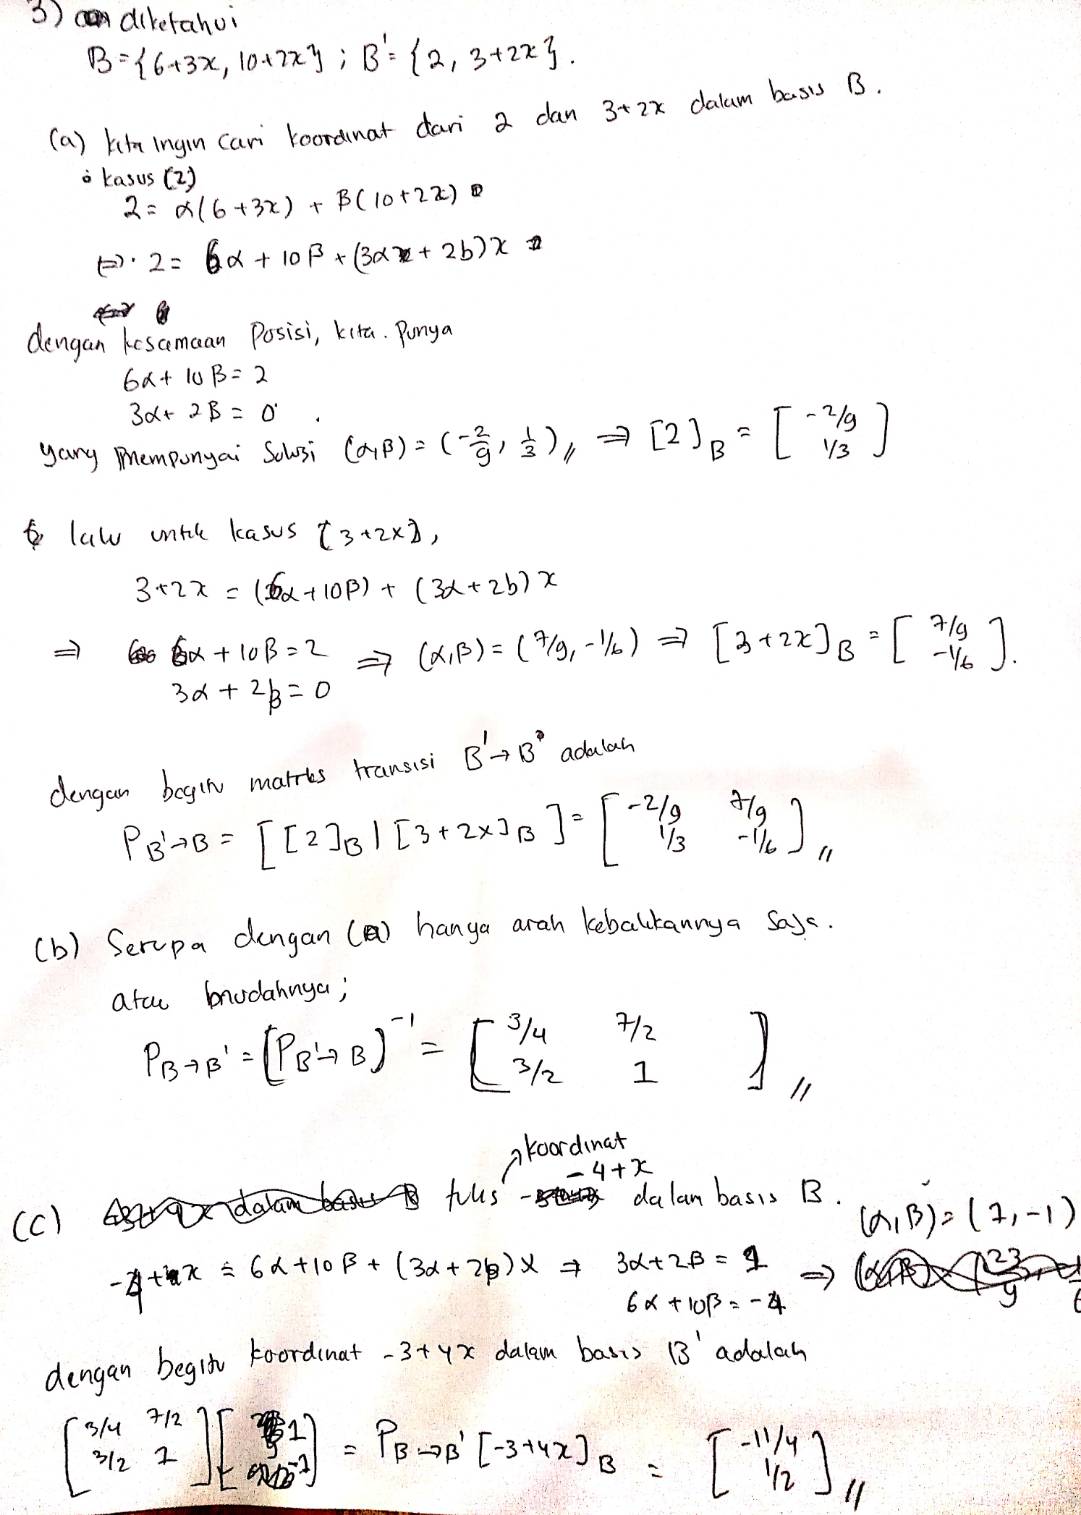 3) diketahui
B = {6+3x, 10+2x} ; B' = {2, 3+2x}.
(a) kita Ingin cari koordinat dari 2 dan 3+2x dalam basis B.
• kasus (2)
2 = α(6+3x) + β(10+2x)
⇔ 2 = 6α + 10β + (3α + 2b)x
dengan kesamaan Posisi, kita Punya
6α + 10β = 2
3α + 2β = 0
yang mempunyai Solusi (α,β) = (-2/9, 1/3) // ⇒ [2]_B = [-2/9 1/3]
lalu untuk kasus {3+2x},
3+2x = (6α+10β) + (3α+2b)x
⇒ 6α + 10β = 2 ⇒ (α,β) = (7/9, -1/6) ⇒ [3+2x]_B = [7/9 -1/6].
3α + 2β = 0
dengan begitu matriks transisi B'→B adalah
P_B'→B = [[2]_B | [3+2x]_B] = [-2/9 7/9 1/3 -1/6] //
(b) Serupa dengan (a) hanya arah kebalikannya saja.
atau mudahnya;
P_B→B' = (P_B'→B)^-1 = [3/4 7/2 3/2 1] //
(c) tulis koordinat -4+x dalam basis B.
-4+x = 6α+10β + (3α+2β)x ⇒ 3α+2β = 1 ⇒ (α,β) = (1,-1)
6α + 10β = -4
dengan begitu koordinat -3+4x dalam basis B' adalah
[3/4 7/2 3/2 1] [1 -1] = P_B→B' [-3+4x]_B = [-11/4 1/2] //